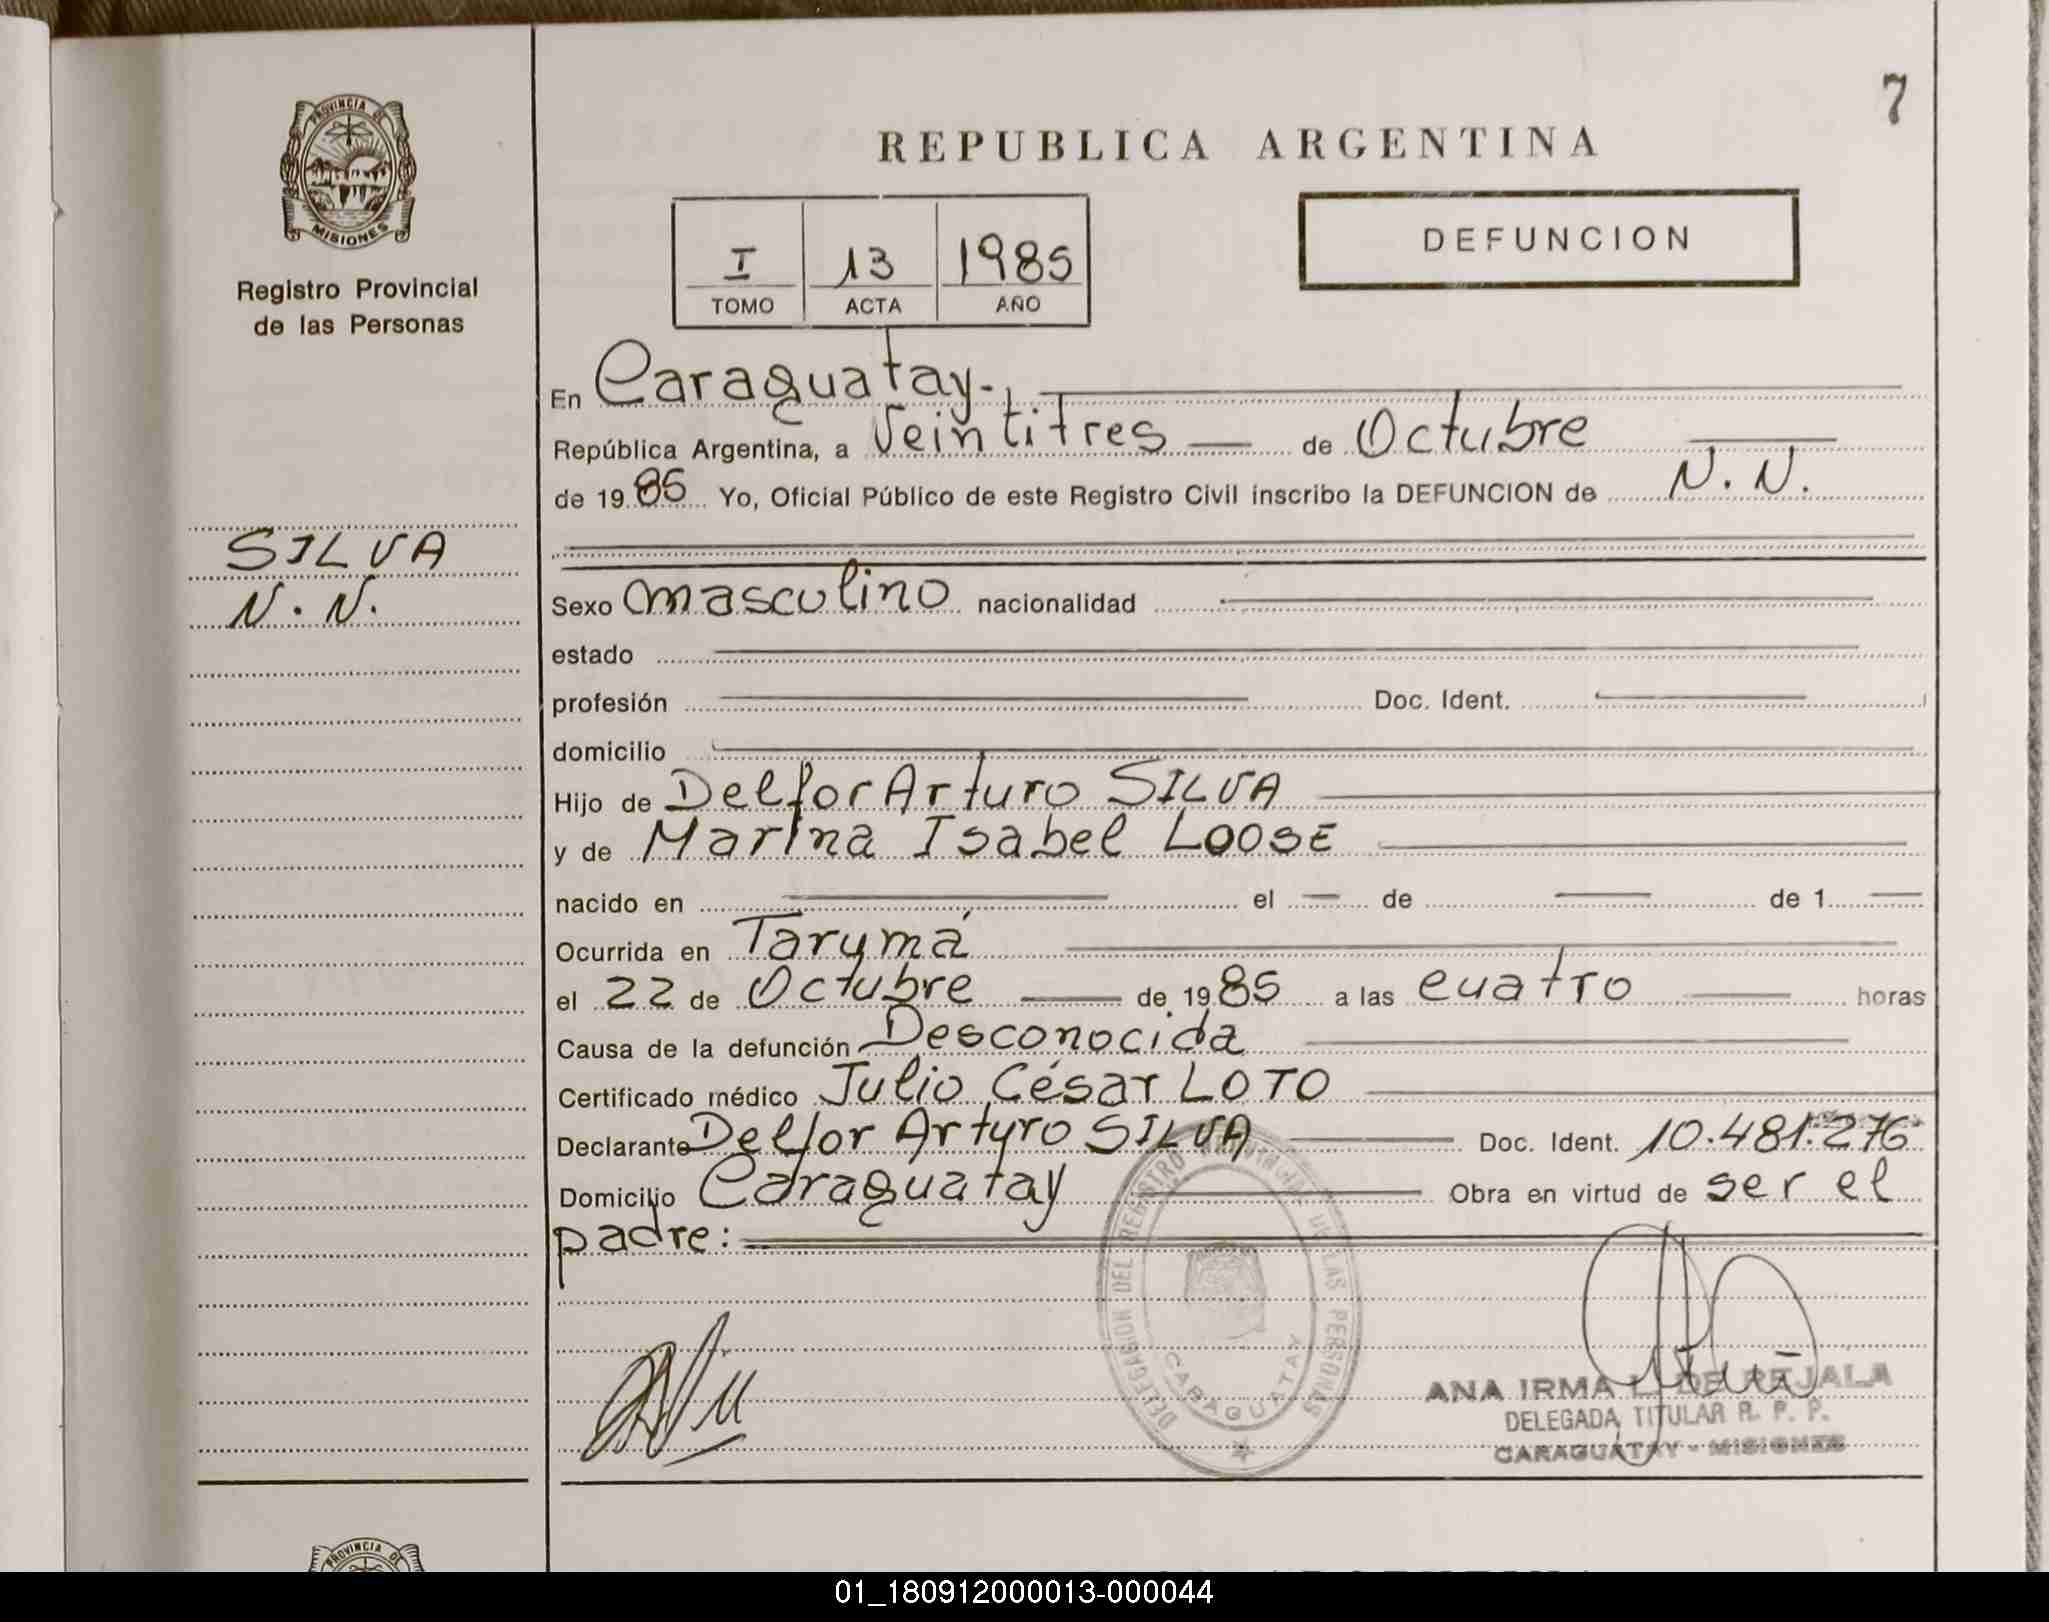 7
REPUBLICA ARGENTINA
PROVINCIA DE
MISIONES
Registro Provincial
de las Personas
I 13 1985
TOMO ACTA AÑO
DEFUNCION
En Caraguatay.
República Argentina, a Veintitres de Octubre
de 1985 Yo, Oficial Público de este Registro Civil inscribo la DEFUNCION de N. N.
SILVA
N. N.
Sexo masculino nacionalidad
estado
profesión Doc. Ident.
domicilio
Hijo de Delfor Arturo SILVA
y de Marina Isabel LOOSE
nacido en el de de 1
Ocurrida en Tarumá
el 22 de Octubre de 1985 a las cuatro horas
Causa de la defunción Desconocida
Certificado médico Julio César LOTO
Declarante Delfor Arturo SILVA Doc. Ident. 10.481.276
Domicilio Caraguatay Obra en virtud de ser el
padre:
DELEGACION DEL REGISTRO PROVINCIAL DE LAS PERSONAS
CARAGUATAY
ANA IRMA L. DE REJALA
DELEGADA TITULAR R. P. P.
CARAGUATAY - MISIONES
PROVINCIA DE
01_180912000013-000044